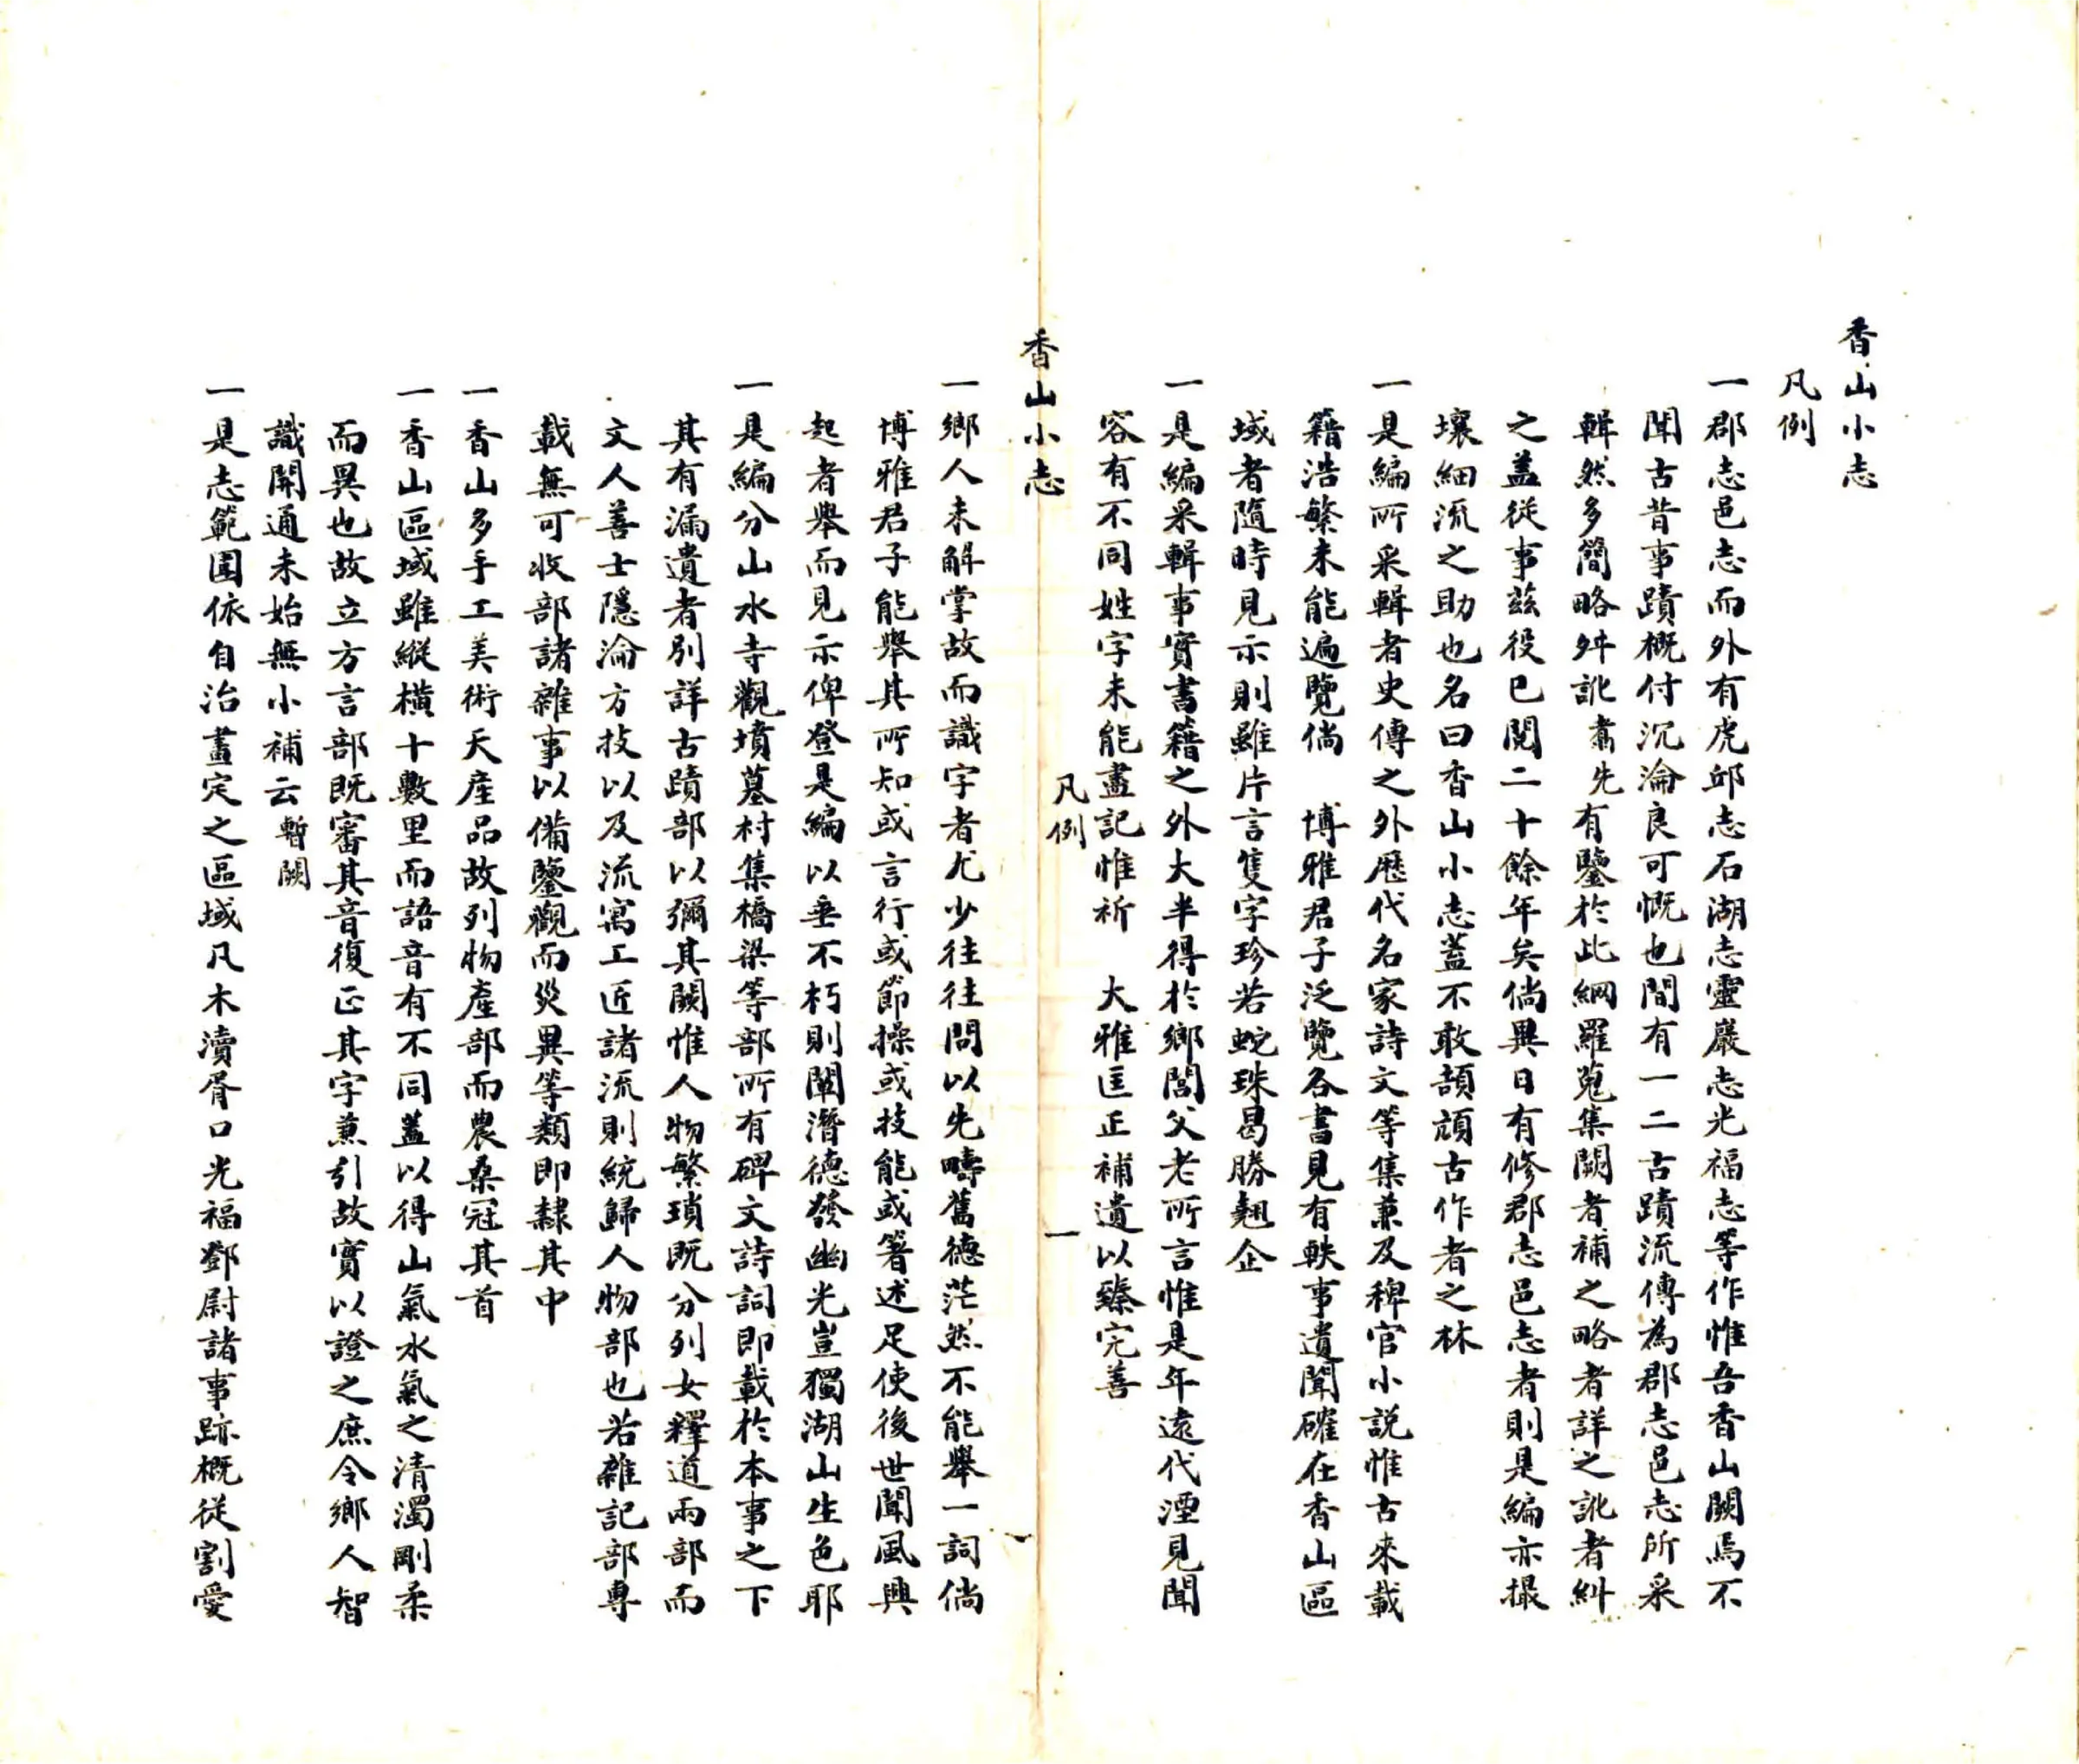 香山小志
凡例
一郡志邑志而外有虎邱志石湖志靈巖志光福志等作惟吾香山闕焉不
聞古昔事蹟概付沉淪良可慨也間有一二古蹟流傳為郡志邑志所采
輯然多簡略舛訛翥先有鑒於此網羅蒐集闕者補之略者詳之訛者糾
之蓋從事茲役已閱二十餘年矣倘異日有修郡志邑志者則是編亦撮
壤細流之助也名曰香山小志蓋不敢頡頏古作者之林
一是編所采輯者史傳之外歷代名家詩文等集兼及稗官小説惟古來載
籍浩繁未能遍覽倘 博雅君子泛覽各書見有軼事遺聞確在香山區
域者隨時見示則雖片言隻字珍若蛇珠曷勝翹企
一是編采輯事實書籍之外大半得於鄉閭父老所言惟是年遠代湮見聞
容有不同姓字未能盡記惟祈 大雅匡正補遺以臻完善
凡例 一
香山小志
一鄉人未解掌故而識字者尤少往往問以先疇舊德茫然不能舉一詞倘
博雅君子能舉其所知或言行或節操或技能或箸述足使後世聞風興
起者舉而見示俾登是編以垂不朽則闡潛德發幽光豈獨湖山生色耶
一是編分山水寺觀墳墓村集橋梁等部所有碑文詩詞即載於本事之下
其有漏遺者別詳古蹟部以彌其闕惟人物繁瑣既分列女釋道兩部而
文人善士隱淪方技以及流寓工匠諸流則統歸人物部也若雜記部專
載無可收部諸雜事以備鑒觀而災異等類即隸其中
一香山多手工美術天產品故列物產部而農桑冠其首
一香山區域雖縱橫十數里而語音有不同蓋以得山氣水氣之清濁剛柔
而異也故立方言部既審其音復正其字兼引故實以證之庶令鄉人智
識開通未始無小補云暫闕
一是志範圍依自治畫定之區域凡木瀆胥口光福鄧尉諸事跡概從割愛